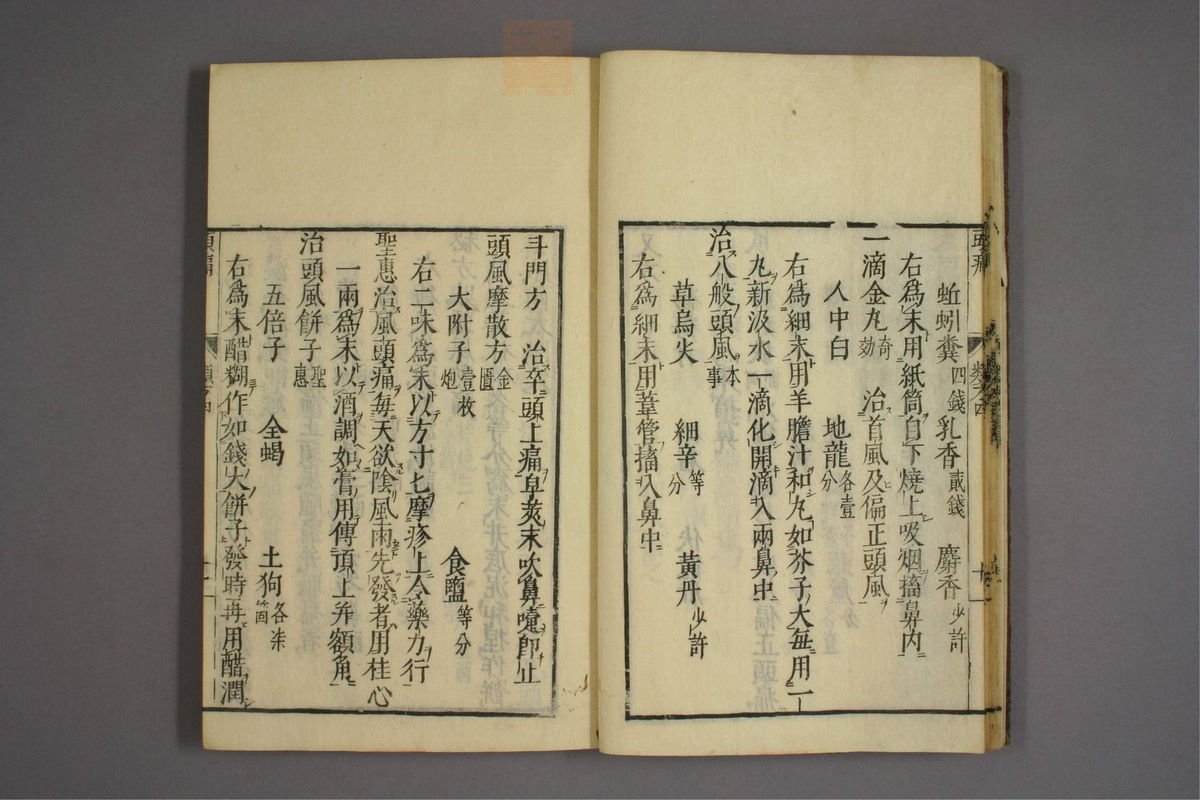 蚯蚓糞四錢 乳香貳錢 麝香少許
右爲末用紙筒自下燒上吸烟搐鼻內
一滴金丸奇効 治首風及偏正頭風
人中白 地龍各壹分
右爲細末用羊膽汁和丸如芥子大每用一
丸新汲水一滴化開滴入兩鼻中
治八般頭風本事
草烏尖 細辛等分 黃丹少許
右爲細末用葦管搐入鼻中
斗門方 治卒頭上痛皁莢末吹鼻嚏卽止
頭風摩散方金匱
大附子壹枚炮 食鹽等分
右二味爲末以方寸匕摩疹上令藥力行
聖惠治風頭痛每天欲陰風雨先發者用桂心
一兩爲末以酒調如膏用傅頂上并額角
治頭風餅子聖惠
五倍子 全蝎 土狗各柒箇
右爲末醋糊作如錢大餅子發時再用醋潤
頭痛